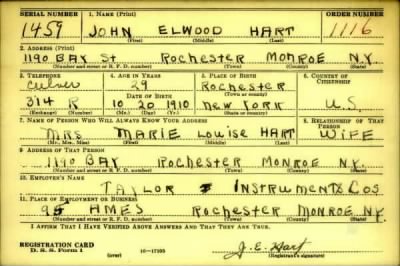 SERIAL NUMBER 1. NAME (Print) ORDER NUMBER
1459 JOHN ELWOOD HART 1116
(First) (Middle) (Last)
2. ADDRESS (Print)
1190 BAY ST ROCHESTER MONROE N.Y.
(Number and street or R. F. D. number) (Town) (County) (State)
3. TELEPHONE 4. AGE IN YEARS 5. PLACE OF BIRTH 6. COUNTRY OF CITIZENSHIP
Culver 29 Rochester
DATE OF BIRTH (Town or county)
314 R 10 20 1910 NEW YORK U.S.
(Exchange) (Number) (Mo.) (Day) (Yr.) (State or country)
7. NAME OF PERSON WHO WILL ALWAYS KNOW YOUR ADDRESS 8. RELATIONSHIP OF THAT PERSON
MRS MARIE Louise HART WIFE
(Mr., Mrs., Miss) (First) (Middle) (Last)
9. ADDRESS OF THAT PERSON
1190 BAY ROCHESTER MONROE N.Y.
(Number and street or R. F. D. number) (Town) (County) (State)
10. EMPLOYER'S NAME
TAYLOR INSTRUMENTS COS
11. PLACE OF EMPLOYMENT OR BUSINESS
95 AMES ROCHESTER MONROE N.Y.
(Number and street or R. F. D. number) (Town) (County) (State)
I AFFIRM THAT I HAVE VERIFIED ABOVE ANSWERS AND THAT THEY ARE TRUE.
REGISTRATION CARD J. E. Hart
D. S. S. Form 1 (over) 16—17105 (Registrant's signature)